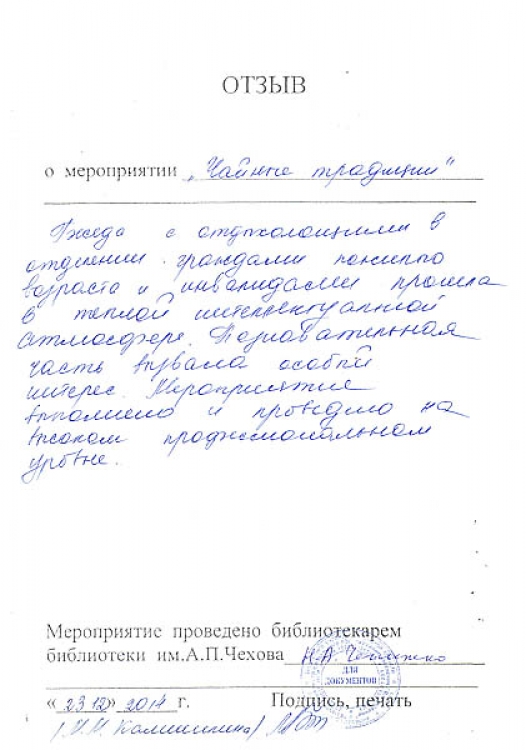 ОТЗЫВ
о мероприятии „Чайные традиции"
Беседа с отдыхающими в
отделении гражданами пожилого
возраста и инвалидами прошла
в теплой интеллектуальной
атмосфере. Познавательная
часть вызвала особый
интерес. Мероприятие
выполнено и проведено на
высоком профессиональном
уровне.
Мероприятие проведено библиотекарем
библиотеки им.А.П.Чехова Н.А.
ДЛЯ
ДОКУМЕНТОВ
«23.12» 2014 г. Подпись, печать